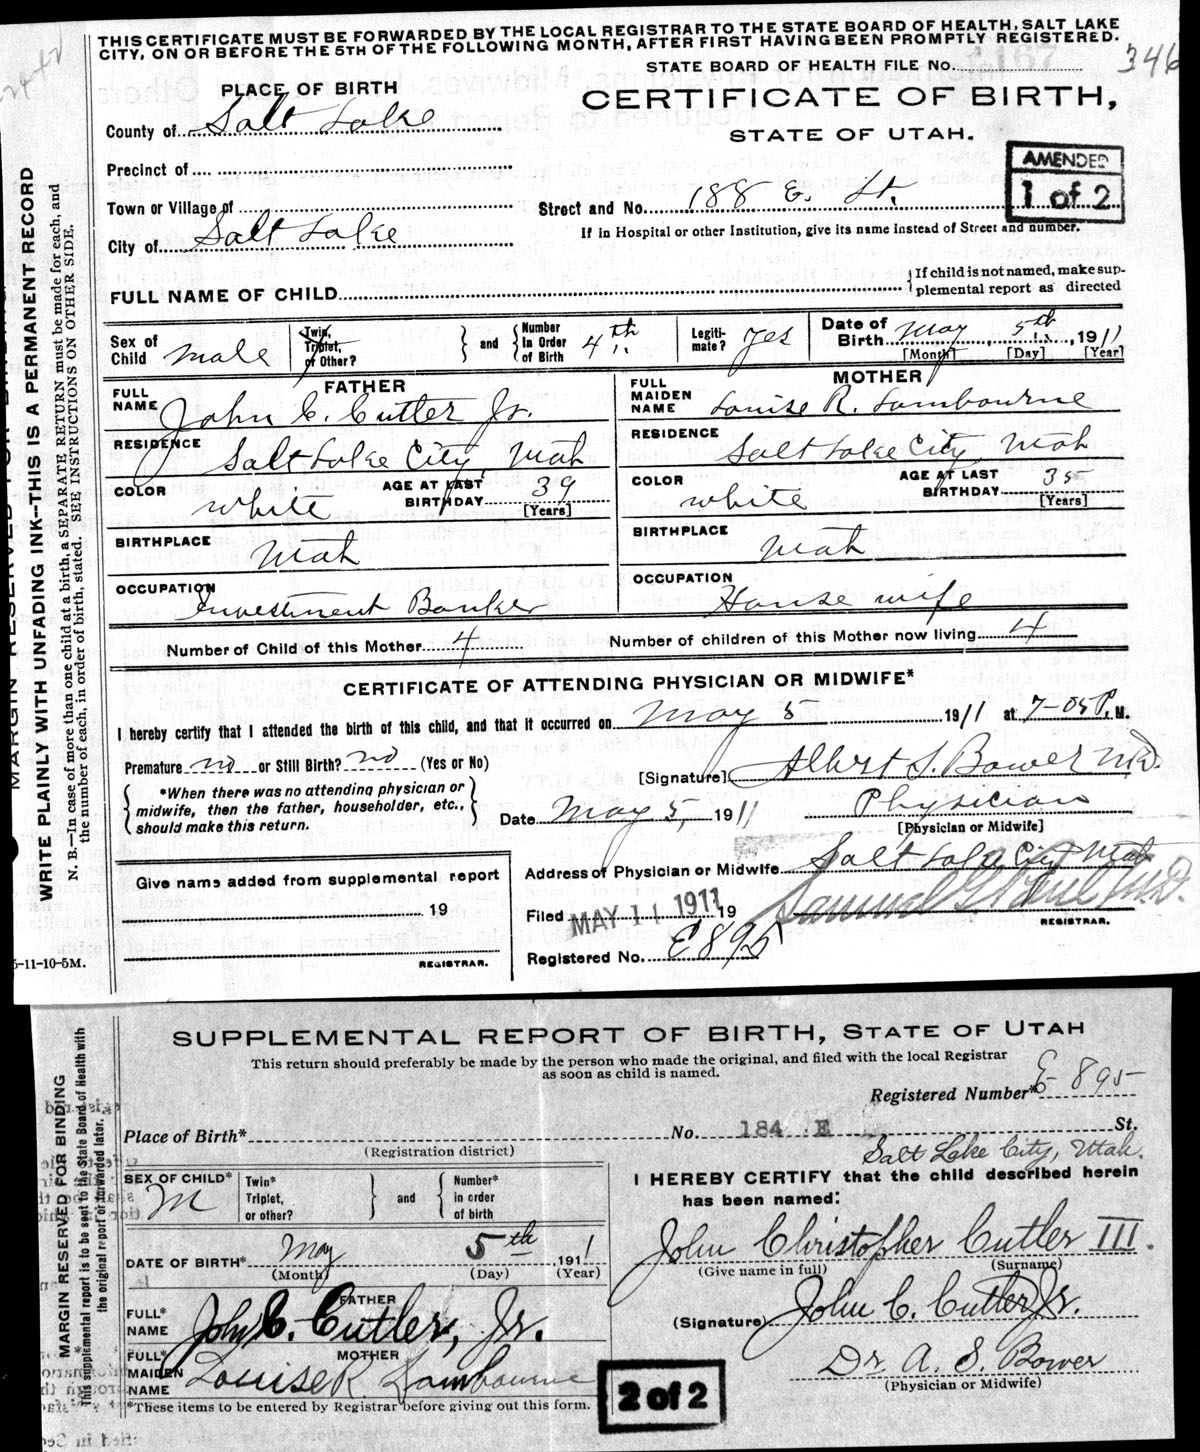 THIS CERTIFICATE MUST BE FORWARDED BY THE LOCAL REGISTRAR TO THE STATE BOARD OF HEALTH, SALT LAKE
CITY, ON OR BEFORE THE 5TH OF THE FOLLOWING MONTH, AFTER FIRST HAVING BEEN PROMPTLY REGISTERED.
STATE BOARD OF HEALTH FILE No. 346
PLACE OF BIRTH
CERTIFICATE OF BIRTH,
STATE OF UTAH.
County of Salt Lake
AMENDED
1 of 2
Precinct of
Town or Village of
Street and No. 188 E. St.
City of Salt Lake
If in Hospital or other Institution, give its name instead of Street and number.
FULL NAME OF CHILD
If child is not named, make sup-
plemental report as directed
Sex of Child Male
Twin, Triplet, or Other?
and
Number In Order of Birth 4th
Legiti- mate? Yes
Date of Birth May 5th, 1911
[Month] [Day] [Year]
FATHER
MOTHER
FULL NAME John C. Cutler Jr.
FULL MAIDEN NAME Louise R. Lambourne
RESIDENCE Salt Lake City, Utah
RESIDENCE Salt Lake City, Utah
COLOR White
AGE AT LAST BIRTHDAY 39 [Years]
COLOR White
AGE AT LAST BIRTHDAY 35 [Years]
BIRTHPLACE Utah
BIRTHPLACE Utah
OCCUPATION Investment Banker
OCCUPATION House wife
Number of Child of this Mother 4
Number of children of this Mother now living 4
CERTIFICATE OF ATTENDING PHYSICIAN OR MIDWIFE*
I hereby certify that I attended the birth of this child, and that it occurred on May 5 1911 at 7-05 P. M.
Premature no or Still Birth? no (Yes or No)
[Signature] Albert S. Bower M.D.
*When there was no attending physician or
midwife, then the father, householder, etc.,
should make this return.
Date May 5, 1911
Physician
[Physician or Midwife]
Address of Physician or Midwife Salt Lake City Utah
Give name added from supplemental report
19
REGISTRAR.
Filed MAY 11 1911 19
Samuel G Paul M.D.
REGISTRAR.
Registered No. E895
5-11-10-5M.
WRITE PLAINLY WITH UNFADING INK—THIS IS A PERMANENT RECORD
N. B.—In case of more than one child at a birth, a SEPARATE RETURN must be made for each, and
the number of each, in order of birth, stated. SEE INSTRUCTIONS ON OTHER SIDE.
SUPPLEMENTAL REPORT OF BIRTH, STATE OF UTAH
This return should preferably be made by the person who made the original, and filed with the local Registrar
as soon as child is named.
Registered Number* E 895
Place of Birth*
No. 184 E St.
(Registration district)
Salt Lake City, Utah.
SEX OF CHILD* M
Twin* Triplet, or other?
and
Number* in order of birth
I HEREBY CERTIFY that the child described herein
has been named:
DATE OF BIRTH* May 5th 1911
(Month) (Day) (Year)
John Christopher Cutler III.
(Give name in full) (Surname)
FATHER
FULL* NAME John C. Cutler, Jr.
(Signature) John C. Cutler Jr.
MOTHER
FULL* MAIDEN NAME Louise R. Lambourne
Dr. A. S. Bower
(Physician or Midwife)
*These items to be entered by Registrar before giving out this form.
2 of 2
MARGIN RESERVED FOR BINDING
This supplemental report is to be sent to the State Board of Health with
the original report or forwarded later.